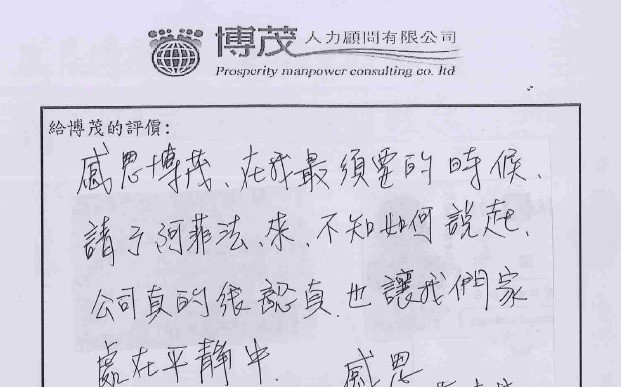 博茂人力顧問有限公司
Prosperity manpower consulting co. ltd
給博茂的評價:
感恩博茂、在我最須要的時候、
請了阿菲法、來、不知如何說起、
公司真的很認真、也讓我們家
處在平靜中.
感恩